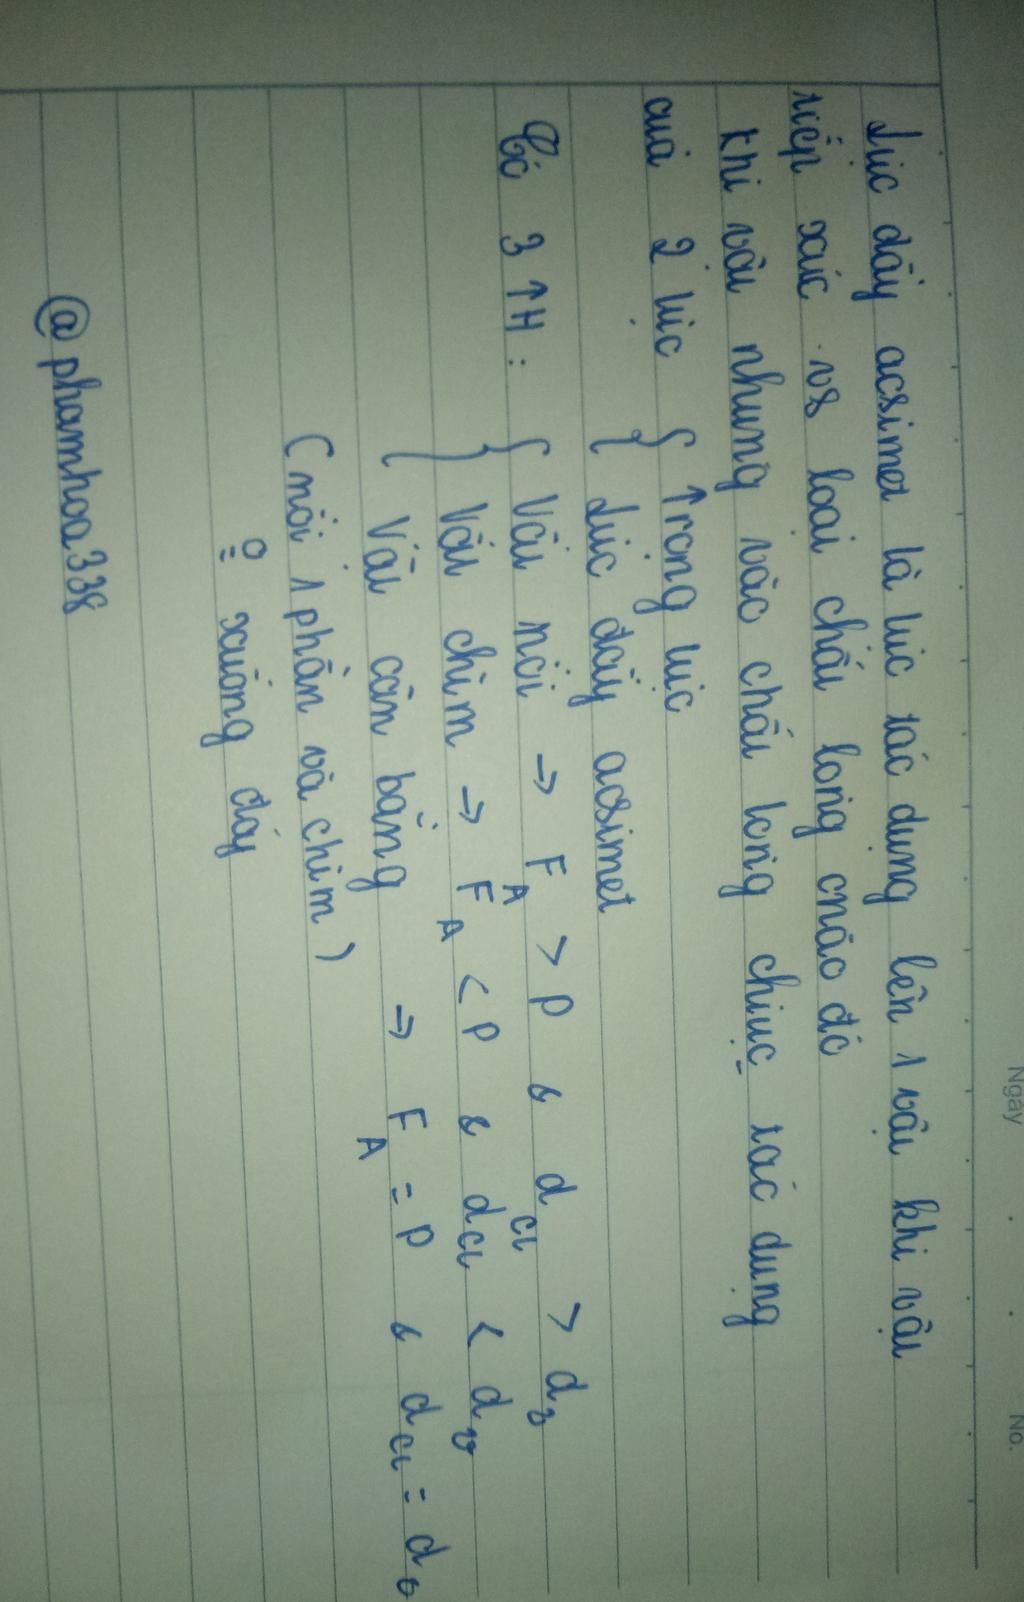 Ngày
No.
Lực đẩy acsimet là lực tác dụng lên 1 vật khi vật
tiếp xúc vs loại chất lỏng cnào đó
Khi vật nhúng vào chất lỏng chịuc tác dụng
của 2 lực { Trọng lực
Lực đẩy acsimet
Có 3 TH : { Vật nổi → FA > P & dcl > dv
{ Vật chìm → FA < P & dcl < dv
{ Vật cân bằng → FA = P & dcl = dv
( nổi 1 phần và chìm )
xuống đáy
@phamhoa338